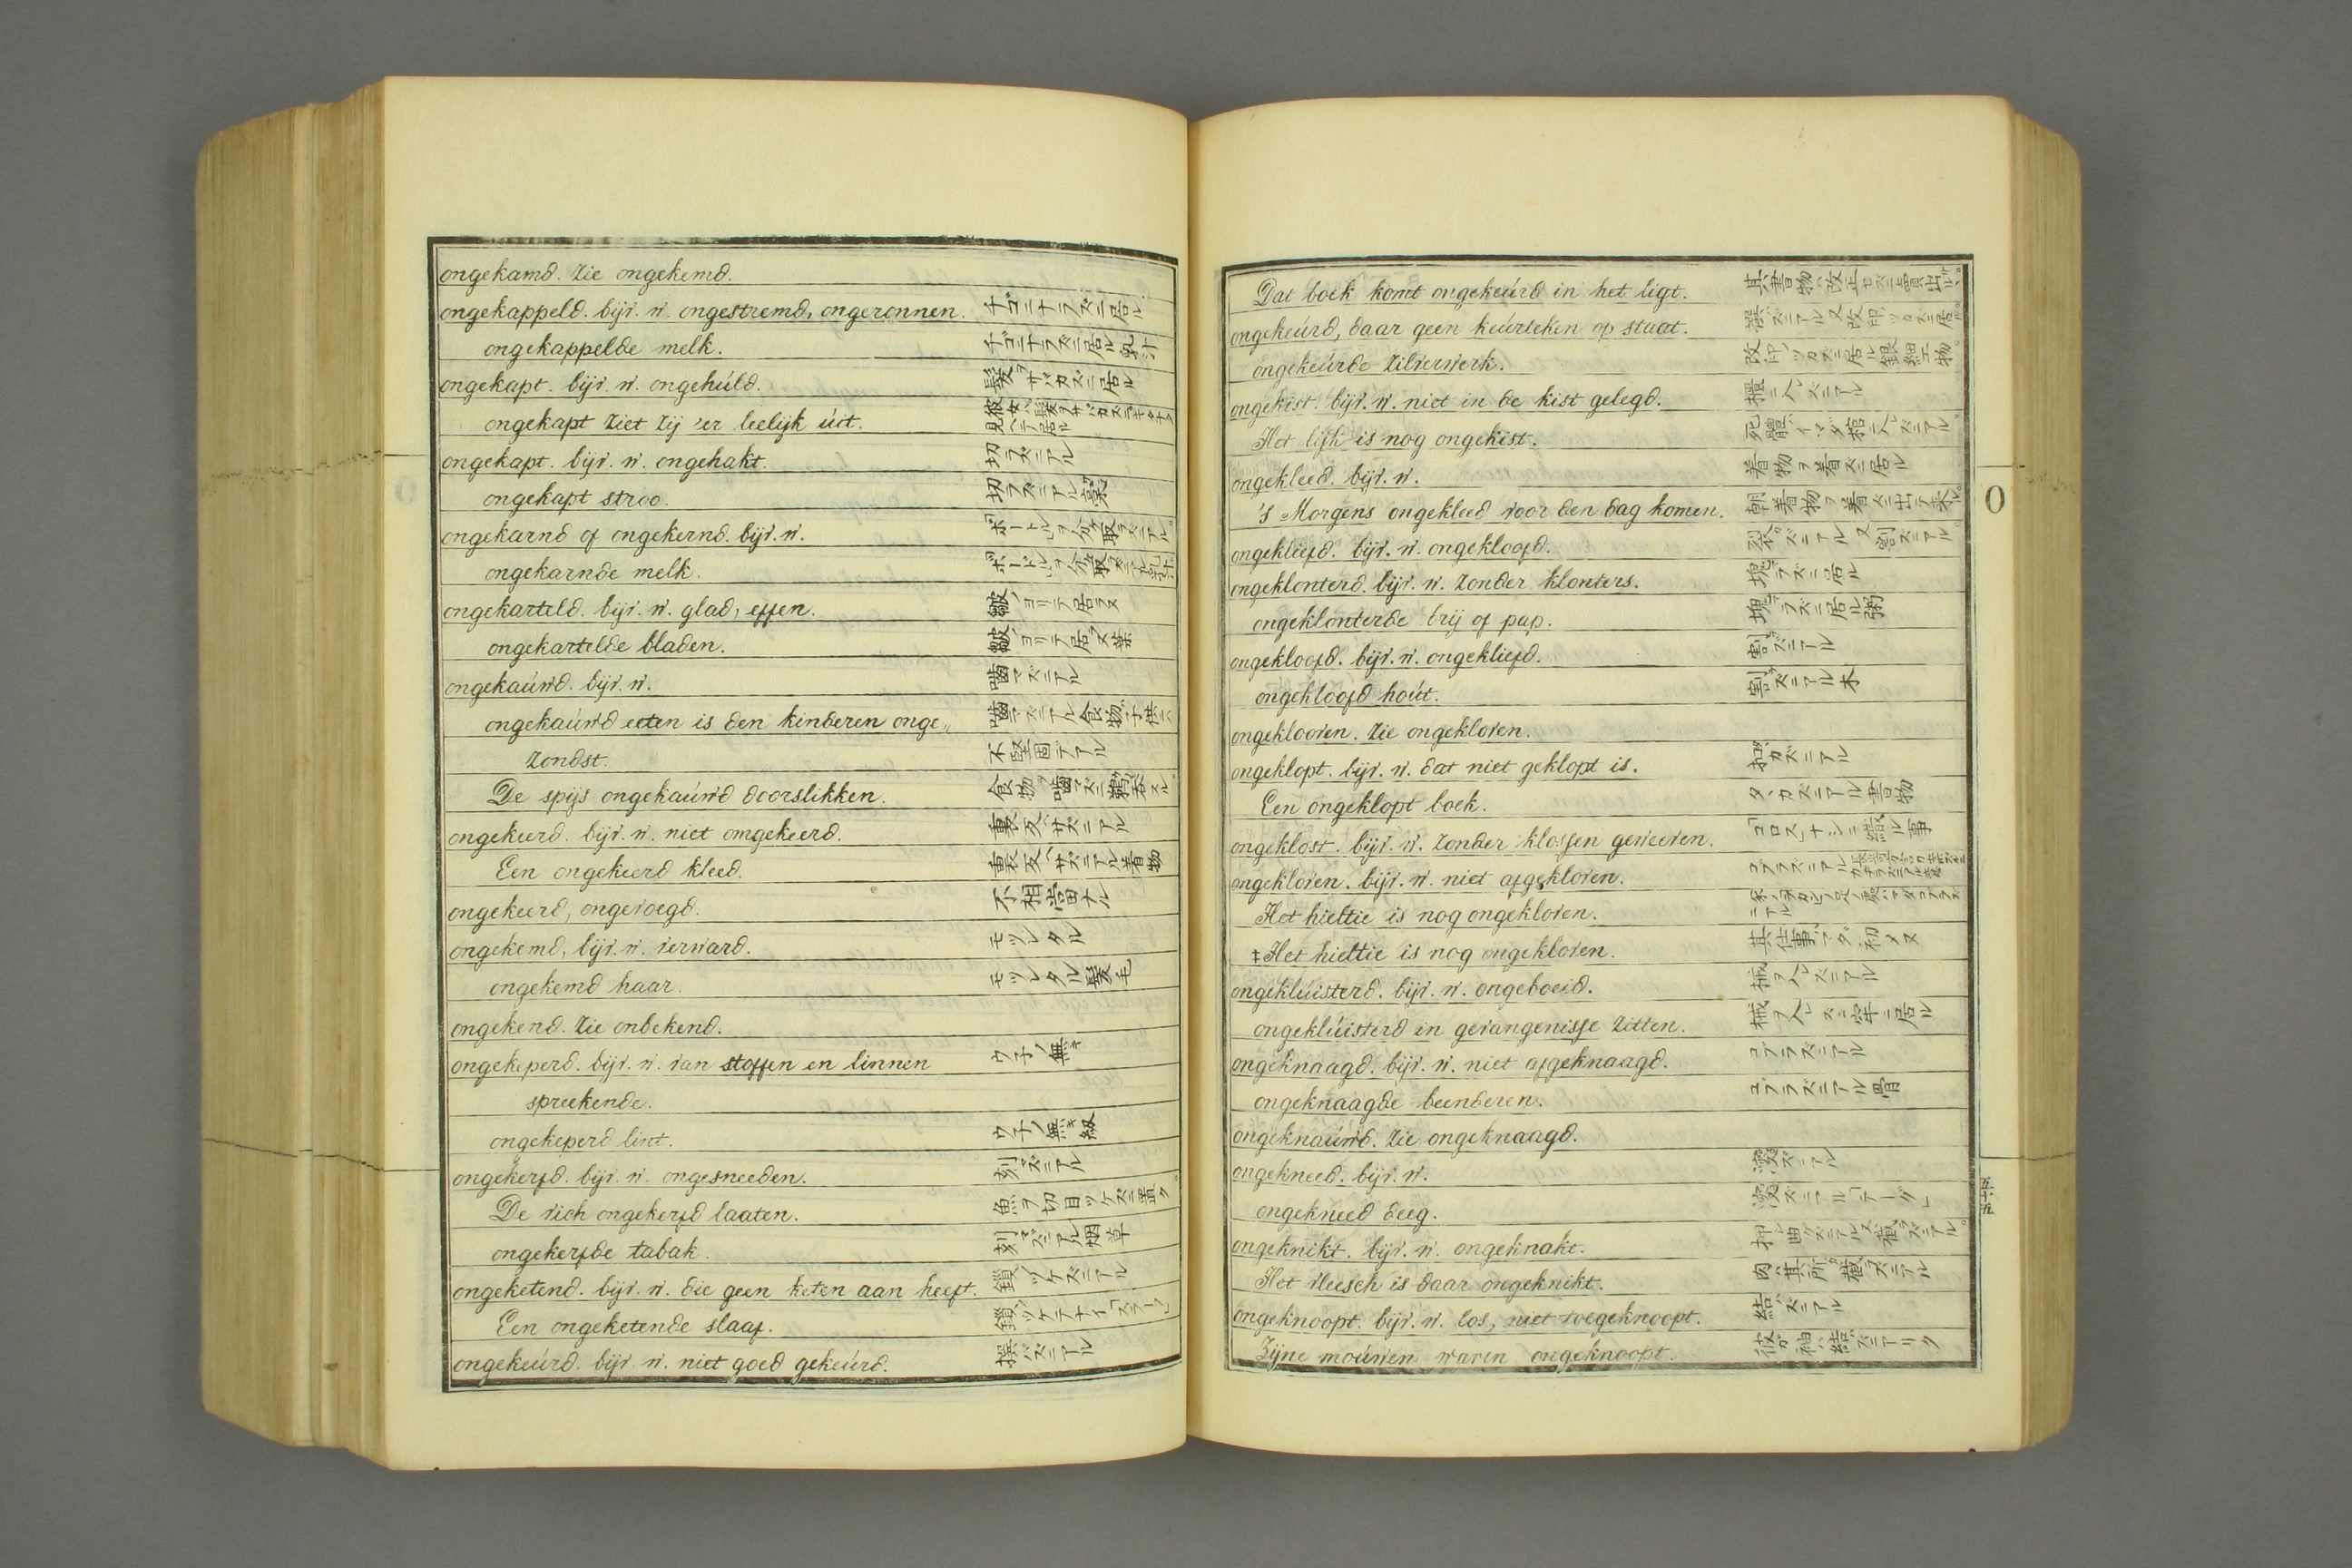 ongekamd. zie ongekemd.
ongekappeld. bijv. w. ongestremd, ongeronnen. チゴニナラズニ居ル
ongekappelde melk. チゴニナラズニ居ル乳汁
ongekapt. bijv. w. ongehúld. 髪ヲサバカズニ居ル
ongekapt ziet zij 'er leelijk úit.
ongekapt. bijv. w. ongehakt. 切ラズニアル
ongekapt stroo. 切ラズニアル藁
ongekarnd of ongekernd. bijv. w. 「ボートル」ヲ分取ラズニアル。
ongekarnde melk. 「ボートル」ヲ分取ラズニアル乳汁
ongekarteld. bijv. w. glad, effen. 皺ノヨリテ居ラヌ
ongekartelde bladen. 皺ノヨリテ居ラヌ葉
ongekaúwd. bijv. w. 嚙マズニアル
ongekaúwd eeten is den kinderen onge„ 嚙マズニアル食物ハ子供ニハ
zondst. 不堅固デアル
De spijs ongekaúwd doorslikken. 食物ヲ嚙マズニ鵜呑スル
ongekeerd. bijv. w. niet omgekeerd. 裏反ヘサズニアル
Een ongekeerd kleed. 裏反ヘサズニアル着物
ongekeerd, ongevoegd. 不相當ナル
ongekemd, bijv. w. verward. モツレタル
ongekemd haar. モツレタル髪毛
ongekend. zie onbekend.
ongekeperd. bijv. w. van stoffen en linnen ウ子ノ無キ
spreekende.
ongekeperd lint. ウ子ノ無キ
ongekerfd. bijv. w. ongesneeden. 刻マズニアル
De visch ongekerfd laaten. 魚ヲ切目ツケズニ置ク。
ongekerfde tabak. 刻マズニアル烟草
ongeketend. bijv. w. die geen keten aan heeft. 鎖ノツケズニアル
Een ongeketende slaaf.
ongekeúrd. bijv. w. niet goed gekeúrd. 撰バズニアル
Dat boek komt ongekeúrd in het ligt.
ongekeúrd, daar geen keúrteken op staat.
ongekeúrde zilverwerk. 改印ノツカズニ居ル銀細工物。
ongekist. bijv. w. niet in de kist gelegd. 櫃ニ入レズニアル
Het lijk is nog ongekist. 死體ハイマダ棺ニ入レズニアル。
ongekleed. bijv. w. 着物ヲ着ズニ居ル
's Morgens ongekleed voor den dag komen. 朝着物ヲ着ズニ出テ来ル。
ongekliefd. bijv. w. ongekloofd.
ongeklonterd. bijv. w. zonder klonters. 塊ラズニ居ル
ongeklonterde brij of pap. 塊ラズニ居ル粥
ongekloofd. bijv. w. ongekliefd. 割ラズニアル
ongekloofd hoút. 割ラズニアル木
ongeklooven. zie ongekloven.
ongeklopt. bijv. w. dat niet geklopt is. 扣カズニアル
Een ongeklopt boek. タヽカズニアル書物
ongeklost. bijv. w. zonder klossen geweeven. 「コロス」ナシニ織ル事
ongekloven. bijv. w. niet afgekloven.
Het hieltie is nog ongekloven.
‡Het hieltie is nog ongekloven. 其仕事ハマダ初メヌ
ongeklúisterd. bijv. w. ongeboeid. 械ヲ入レズニアル
ongeklúisterd in gevangenisse zitten. 械ヲ入レズニ牢ニ居ル
ongeknaagd. bijv. w. niet afgeknaagd. コブラズニアル
ongeknaagde beenderen. コブラズニアル骨
ongeknaúwd. zie ongeknaagd.
ongekneed. bijv. w.
ongekneed deeg.
ongeknikt. bijv. w. ongeknakt.
Het vleesch is daar ongeknikt.
ongeknoopt. bijv. w. los, niet toegeknoopt. 結バズニアル
Zijne moúwen waren ongeknoopt. 彼ガ袖ハ結バズニアリタ
O
五十五